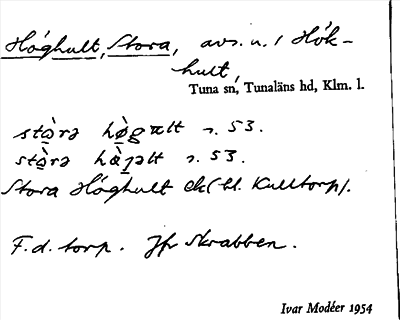 Höghult, Stora, avs. u. / Hök-
hult,
Tuna sn, Tunaläns hd, Klm. l.
stọ̀rə hø̣̀gælt s. 53.
stọ̀rə hø̣̀gəlt s. 53.
Stora Höghult ek (bl. Kulltorp).
F.d. torp. Jfr Skrabben.
Ivar Modéer 1954